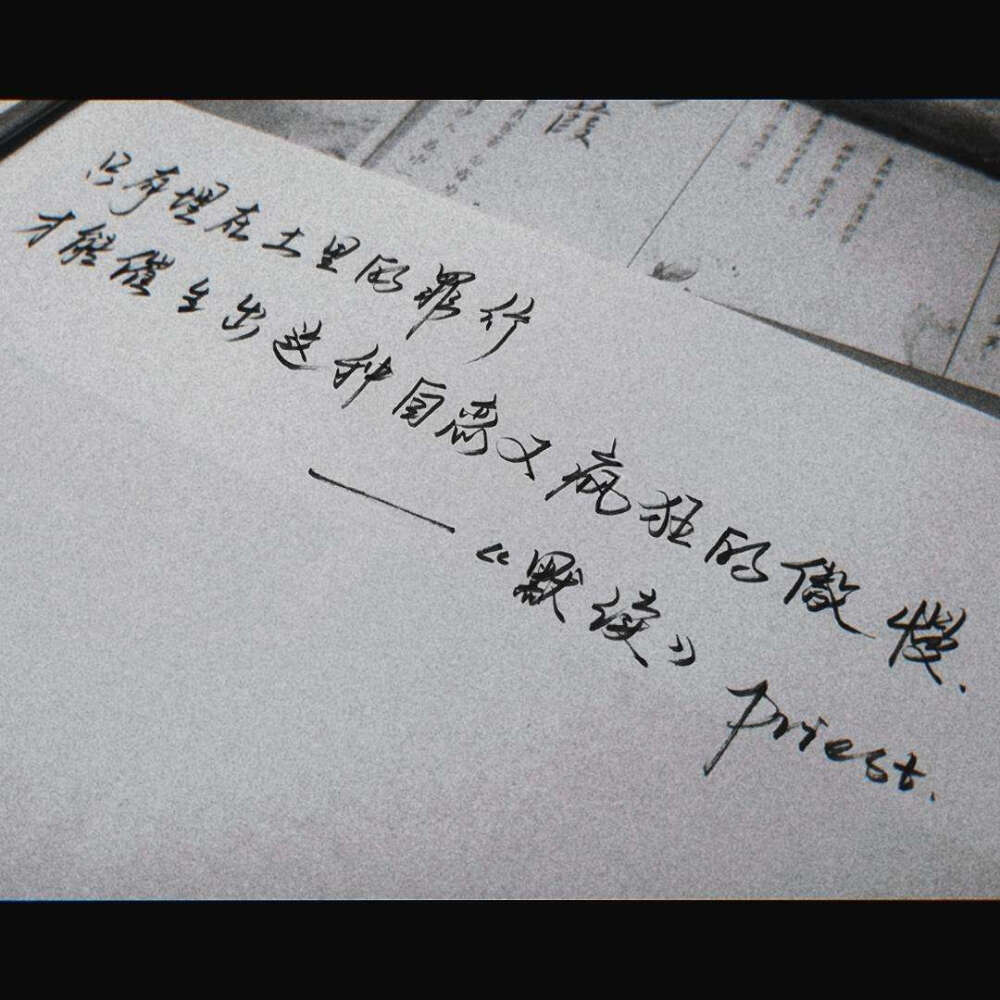 只有埋在土里的罪行
才能催生出这种自恋又疯狂的傲慢.
——《默读》
Priest.
葭